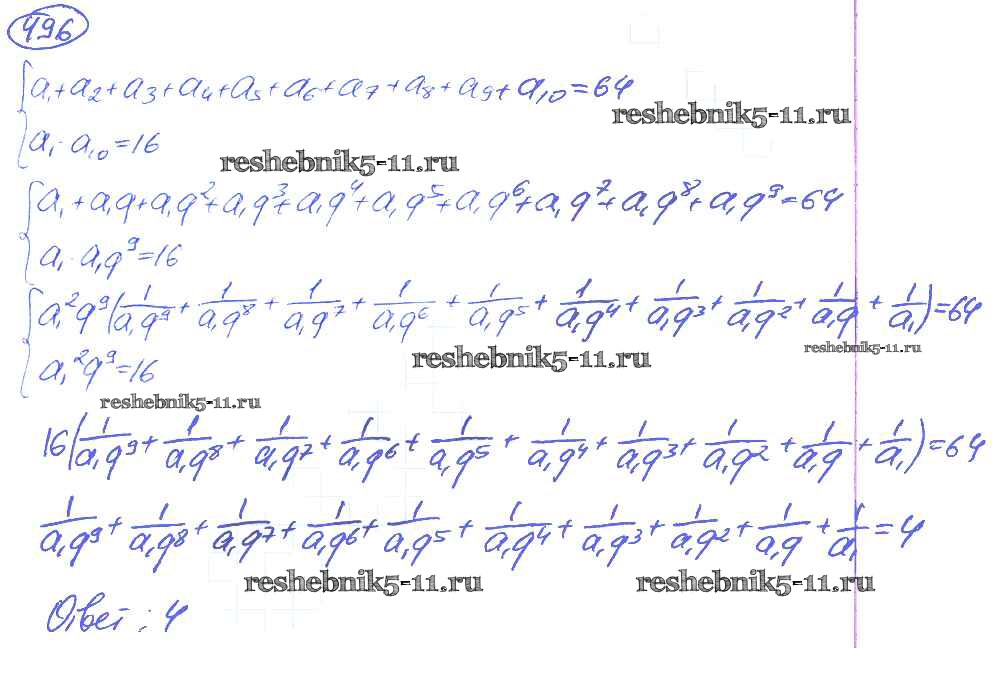 496
a₁+a₂+a₃+a₄+a₅+a₆+a₇+a₈+a₉+a₁₀=64
reshebnik5-11.ru
a₁·a₁₀=16
reshebnik5-11.ru
a₁+a₁q+a₁q²+a₁q³+a₁q⁴+a₁q⁵+a₁q⁶+a₁q⁷+a₁q⁸+a₁q⁹=64
a₁·a₁q⁹=16
a₁²q⁹(1/a₁q⁹+1/a₁q⁸+1/a₁q⁷+1/a₁q⁶+1/a₁q⁵+1/a₁q⁴+1/a₁q³+1/a₁q²+1/a₁q+1/a₁)=64
reshebnik5-11.ru
reshebnik5-11.ru
a₁²q⁹=16
reshebnik5-11.ru
16(1/a₁q⁹+1/a₁q⁸+1/a₁q⁷+1/a₁q⁶+1/a₁q⁵+1/a₁q⁴+1/a₁q³+1/a₁q²+1/a₁q+1/a₁)=64
1/a₁q⁹+1/a₁q⁸+1/a₁q⁷+1/a₁q⁶+1/a₁q⁵+1/a₁q⁴+1/a₁q³+1/a₁q²+1/a₁q+1/a₁=4
reshebnik5-11.ru reshebnik5-11.ru
Ответ: 4